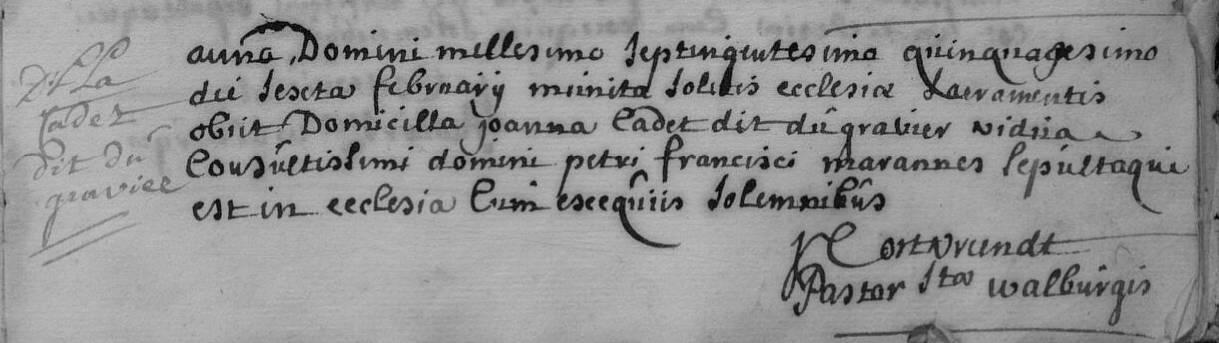 D^lla
Cadet
dit du
gravier
anno Domini millesimo septingentesimo quinquagesimo
die sexta februarij munita solitis ecclesiæ sacramentis
obiit Domicilla joanna Cadet dit du gravier vidua
Consultissimi domini petri francisci marannes sepultaque
est in ecclesia Cum exequiis solemnibus
Cortvrundt
Pastor S^tæ walburgis